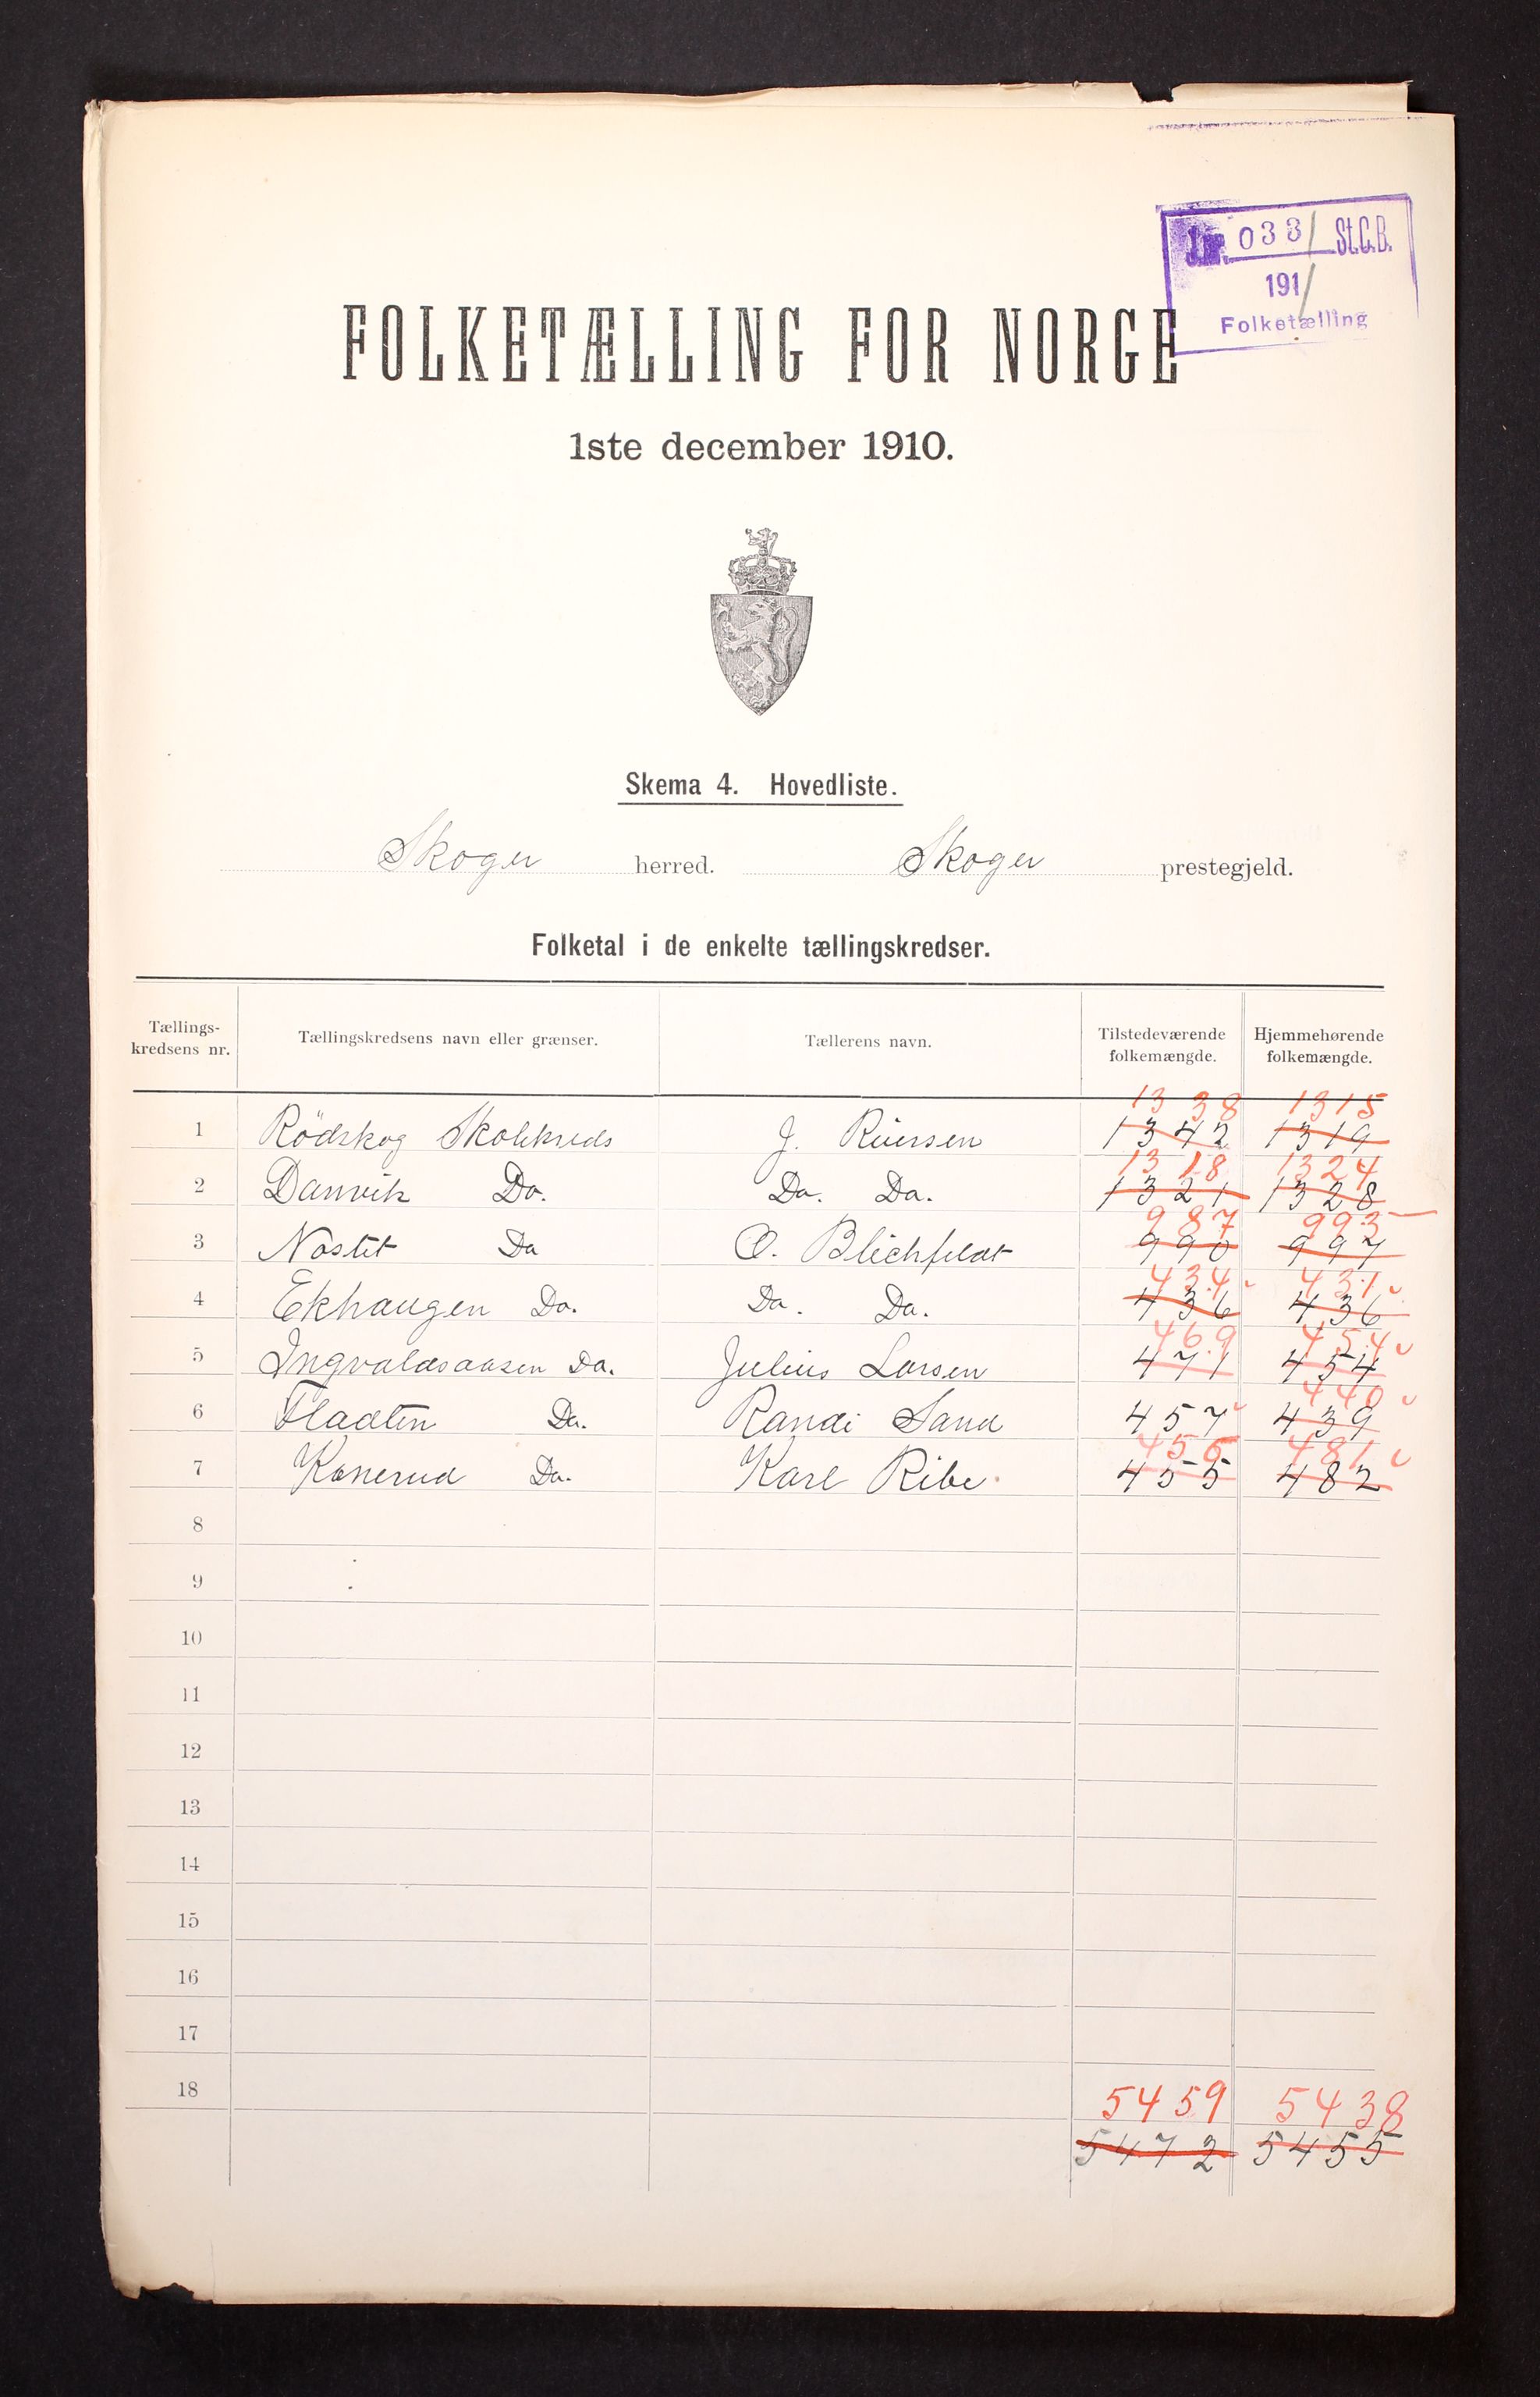 J.nr. 033 / St.C.B.
191/
Folketælling
FOLKETÆLLING FOR NORGE
1ste december 1910.
Skema 4. Hovedliste.
Skoger herred. Skoger prestegjeld.
Folketal i de enkelte tællingskredser.
Tællings-kredsens nr. Tællingskredsens navn eller grænser. Tællerens navn. Tilstedeværende folkemængde. Hjemmehørende folkemængde.
1338 1315
1 Rödskog Skolekreds J. Riversen 1342 1319
1318 1324
2 Danvik Do. Do. Do. 1321 1328
987 993
3 Nøstet Do O. Blichfeldt 990 997
434 431
4 Ekhaugen Do. Do. Do. 436 436
469 454
5 Ingvaldsaasen Do. Julius Larsen 471 454
440
6 Fladten Do. Randi Sand 457 439
456 481
7 Konerud Do. Karl Ribe. 455 482
8
9
10
11
12
13
14
15
16
17
18
5459 5438
5472 5455